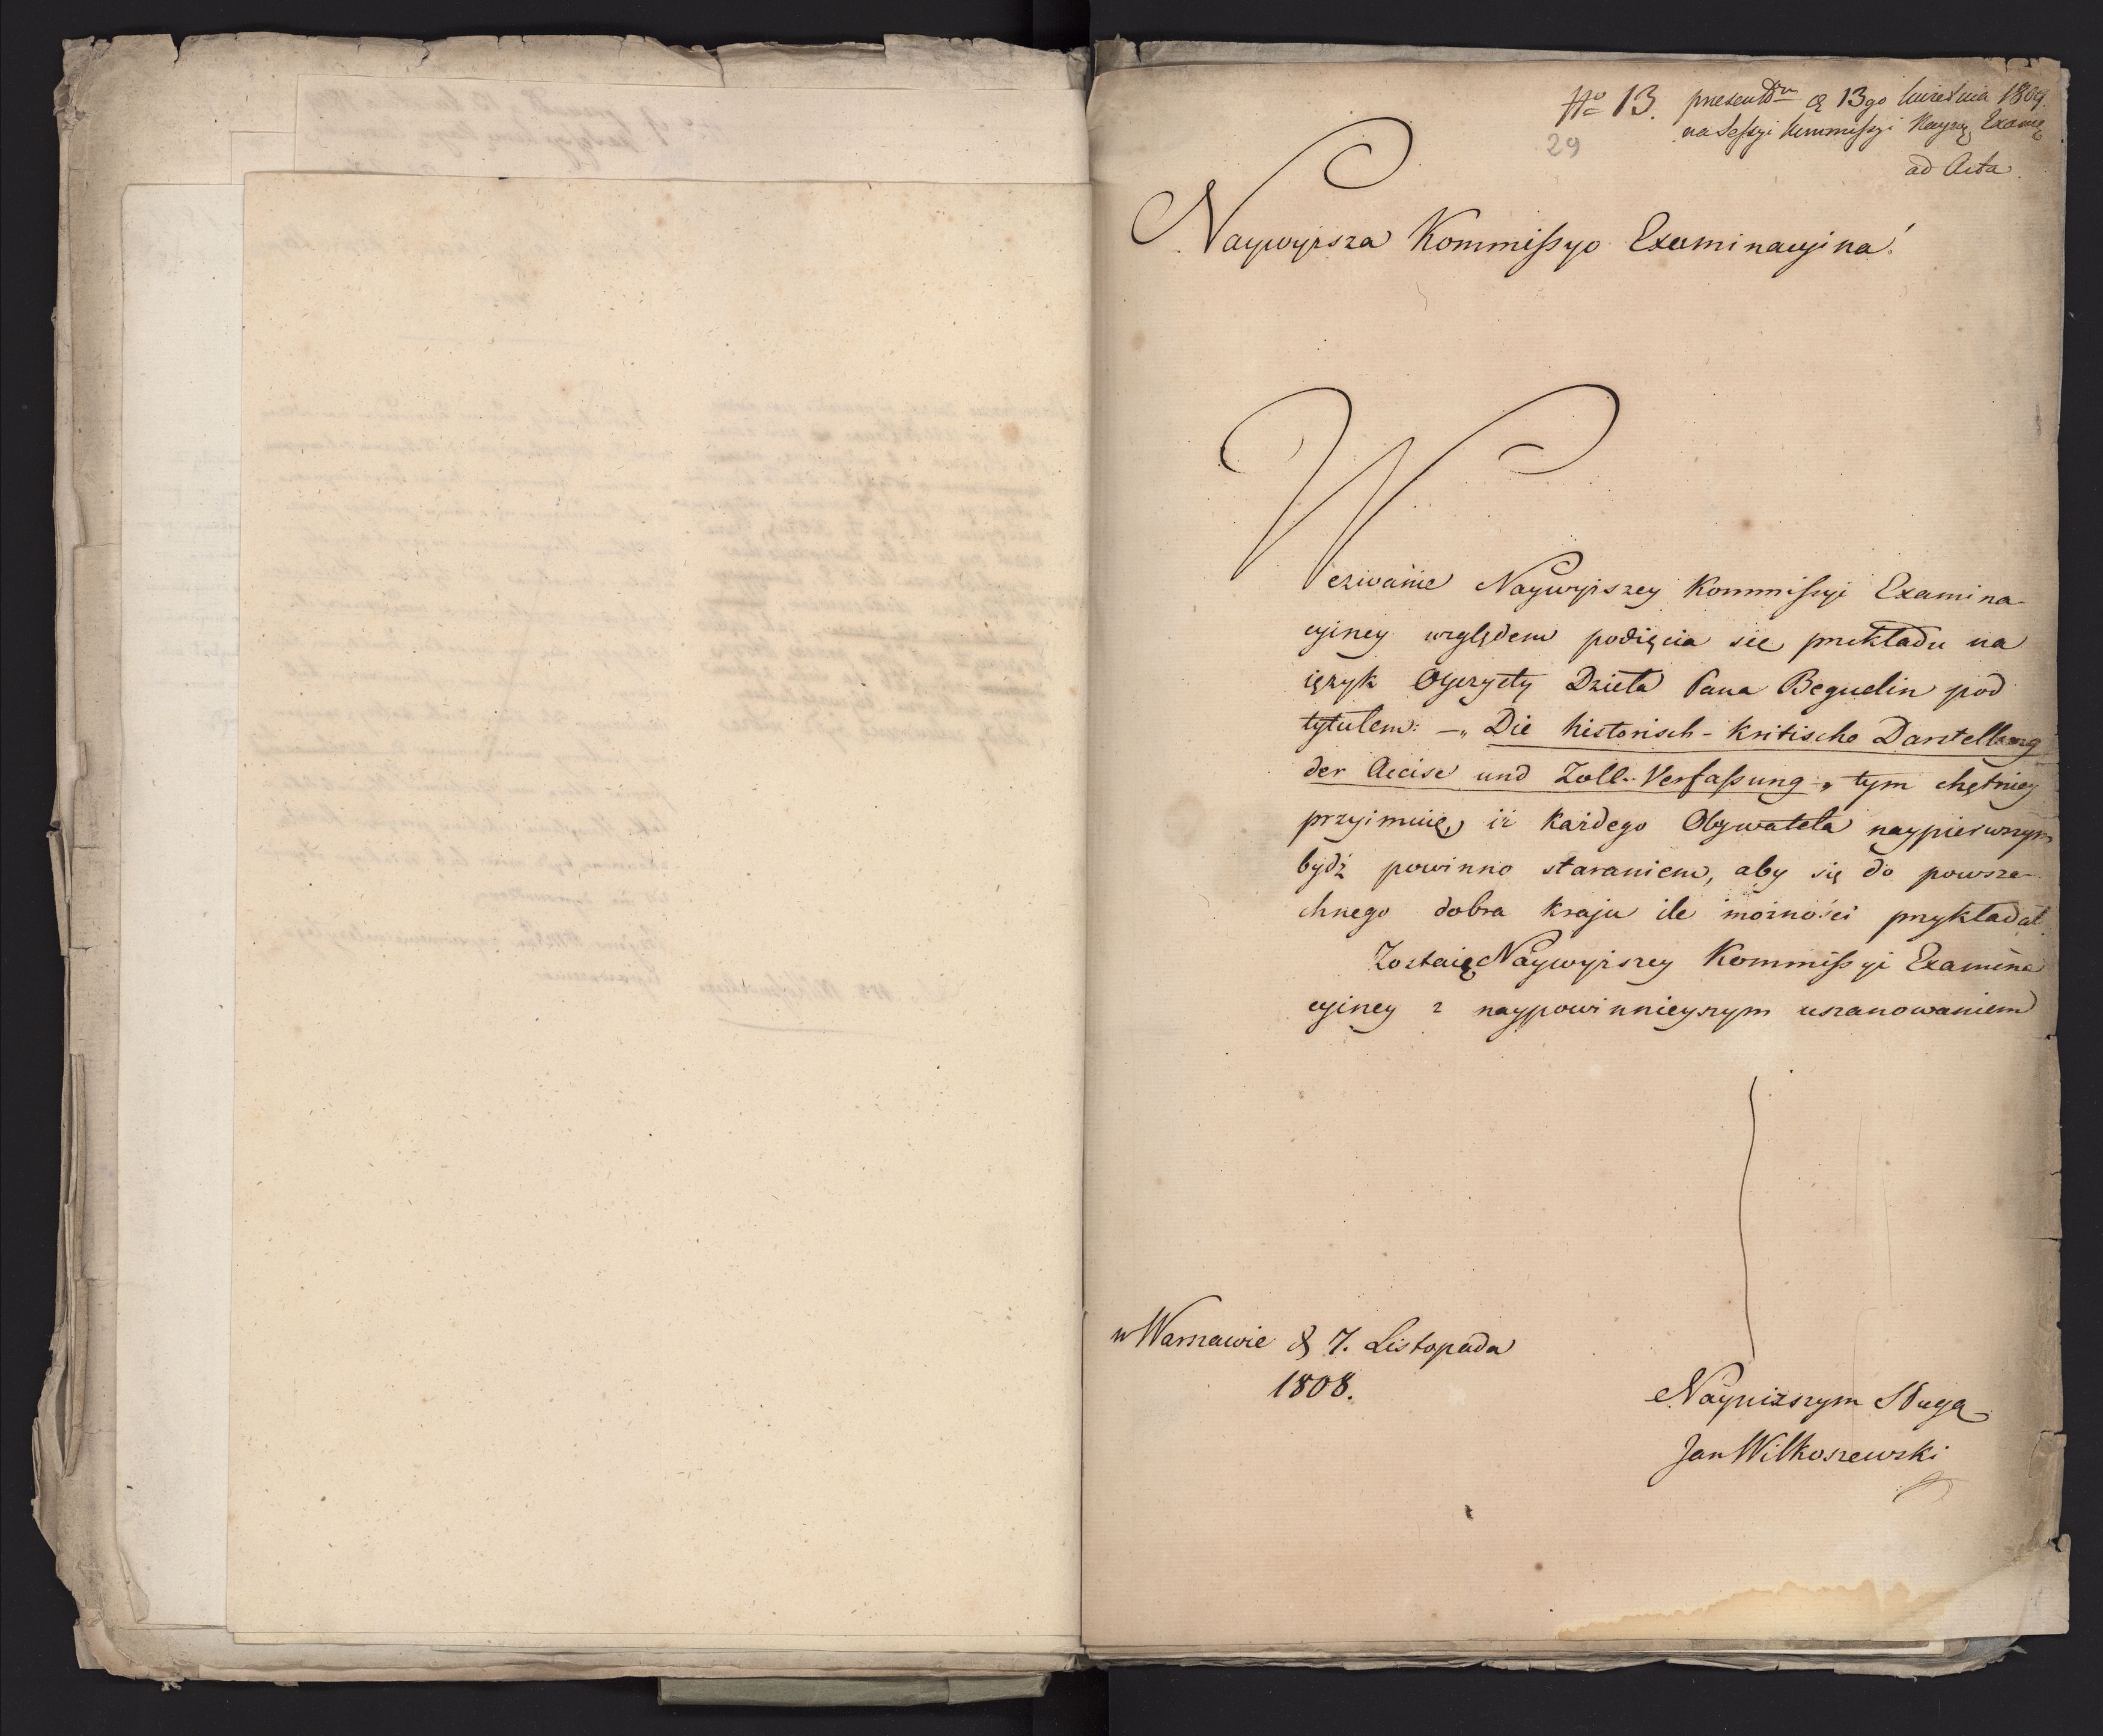 No 13. presentm d 13go kwietnia 1809.
na Sessyi Kommissyi Naywyż Exam
29
ad Acta
Naywyższa Kommissyo Examinacyina!
Wezwanie Naywyższey Kommissyi Examina-
cyiney względem podięcia się przekładu na
ięzyk Oyczysty Dzieła Pana Beguelin pod
tytułem: – „Die historisch-kritische Darstellung
der Accise und Zoll-Verfaßung –„ tym chętniey
przyimuię, iż każdego Obywatela naypierwszym
bydź powinno staraniem, aby się do powsze-
chnego dobra kraju ile możności przykładał.
Zostaię Naywyższey Kommissyi Examina
cyiney z naypowinnieyszym uszanowaniem
w Warszawie d 7. Listopada
1808.
Nayniższym Sługą
Jan Wilkoszewski